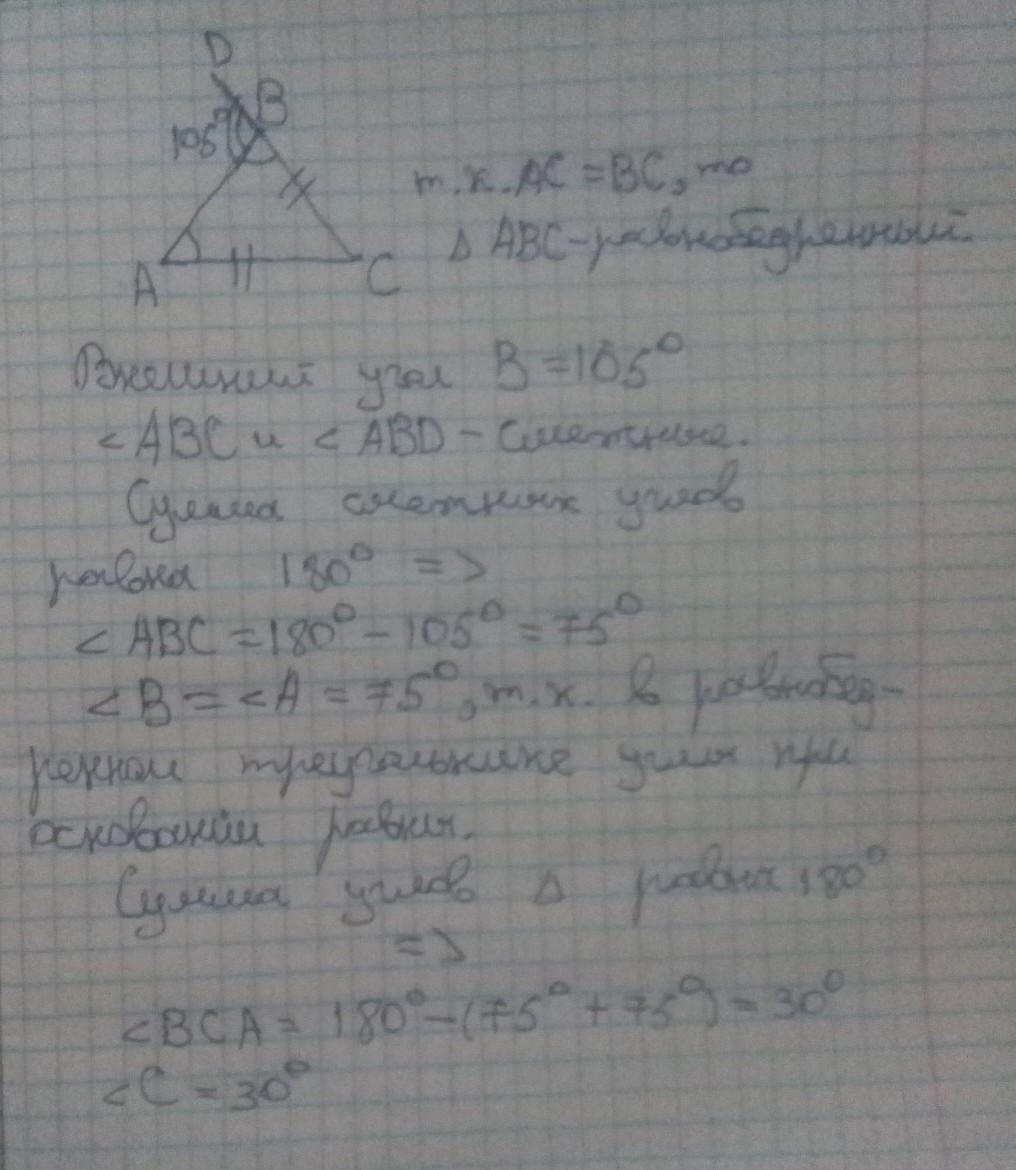 D
B
105°
т.к. AC = BC, то
Δ ABC - равнобедренный.
A
C
Внешний угол B = 105°
< ABC и < ABD - смежные.
Сумма смежных углов
равна 180° =>
< ABC = 180° - 105° = 75°
< B = < A = 75°, т.к. в равнобед-
ренном треугольнике углы при
основании равны.
Сумма углов Δ равна 180°
=>
< BCA = 180° - (75° + 75°) = 30°
< C = 30°